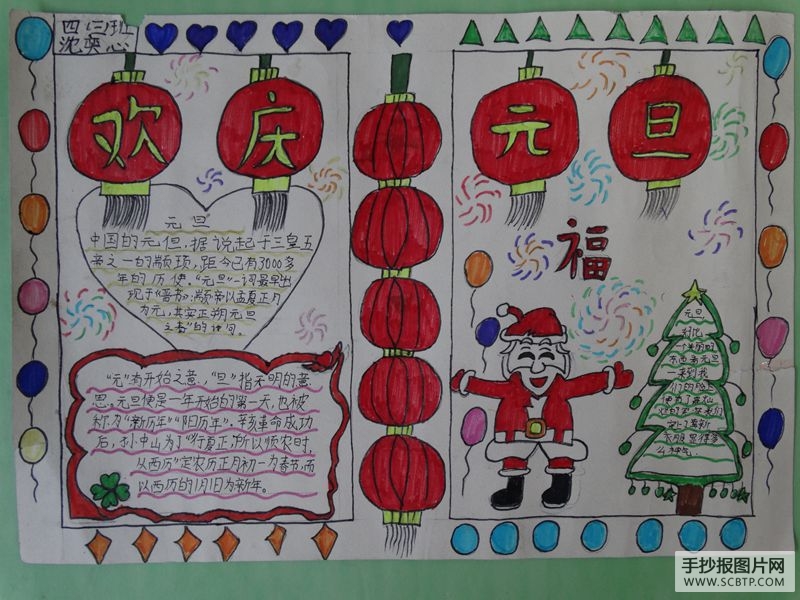 四(三)班
沈奕心
欢 庆 元 旦
元旦
中国的元但，据说起于三皇五
帝之一的颛顼，距今已有3000多
年的历使。“元旦”一词最早出
现于《晋书》：颛帝以孟夏正月
为元，其实正朔元旦
之春”的诗句。
“元”有开始之意，“旦”指天明的意
思。元旦便是一年开始的第一天，也被
称为“新历年”“阳历年”。辛亥革命成功
后，孙中山为了“行夏正，所以顺农时，
从西历”定农历正月初一为春节，而
以西历的1月1日为新年。
福
元旦
一个美丽的
一来到我
们的
手抄报图片网
WWW.SCBTP.COM